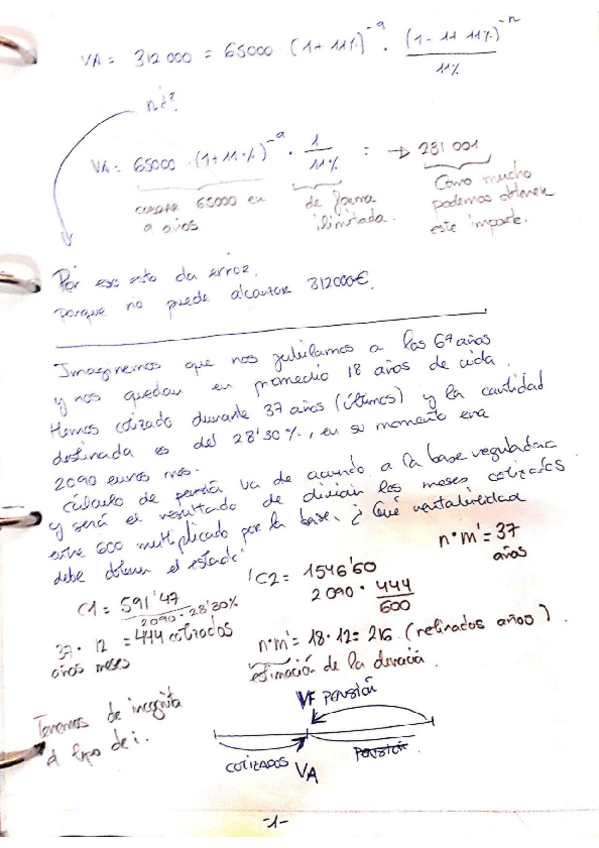 VA = 312 000 = 65000 · (1+11%)^-9 · (1-1+11%)^-n / 11%
n d?
VA = 65000 · (1+11%)^-9 · 1 / 11% : → 281 001
cobrar 65000 en 9 años
de forma ilimitada.
Como mucho podemos obtener este importe.
Por eso esto da error.
porque no puede alcanzar 312000€.
Imaginemos que nos jubilamos a los 67 años
y nos quedan en promedio 18 años de vida.
Hemos cotizado durante 37 años (últimos) y la cantidad
destinada es del 28'30%, en su momento era
2090 euros mes.
Cálculo de pensión va de acuerdo a la base reguladora
y será el resultado de dividir los meses cotizados
entre 600 multiplicado por la base. ¿Qué rentabilidad
debe obtener el estado?
n·m' = 37 años
C1 = 591'47
2090 · 28'30%
C2 = 1546'60
2090 · 444 / 600
37 · 12 = 444 cotizados
años meses
n·m' = 18·12 = 216 (retirados años).
estimación de la duración.
Tenemos de incognita
el tipo de i.
VF pensión
COTIZADOS VA pensión
-1-